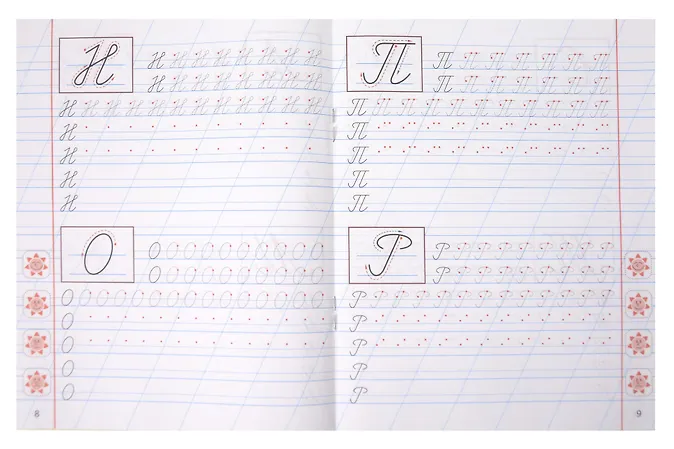 Н
Н Н Н Н Н Н Н Н
Н Н Н Н Н Н Н Н
Н Н Н Н Н Н Н Н Н Н Н Н
Н
Н
Н
Н
О
О О О О О О О О О О О
О О О О О О О О О О О
О О О О О О О О О О О О О О О О
О
О
О
О
8
П
П П П П П П П
П П П П П П П
П П П П П П П П П П
П
П
П
П
Р
Р Р Р Р Р Р Р Р Р
Р Р Р Р Р Р Р Р Р
Р Р Р Р Р Р Р Р Р Р Р Р Р
Р
Р
Р
Р
9